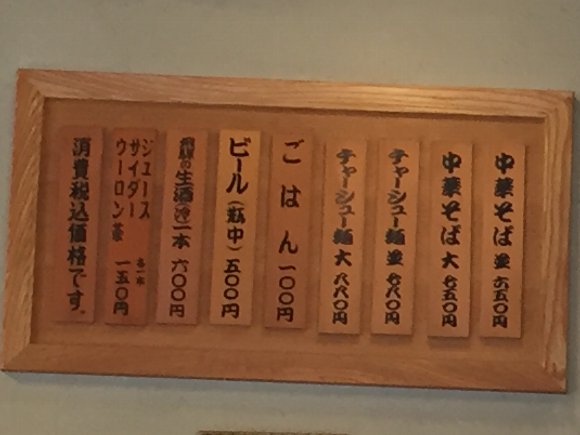 中華そば 並 六五〇円
中華そば 大 七五〇円
チャーシュー麺 並 七八〇円
チャーシュー麺 大 八八〇円
ごはん 一〇〇円
ビール（瓶中） 五〇〇円
飛騨の生酒 一本 六〇〇円
ジュース
サイダー
ウーロン茶
各一本 一五〇円
消費税込価格です。